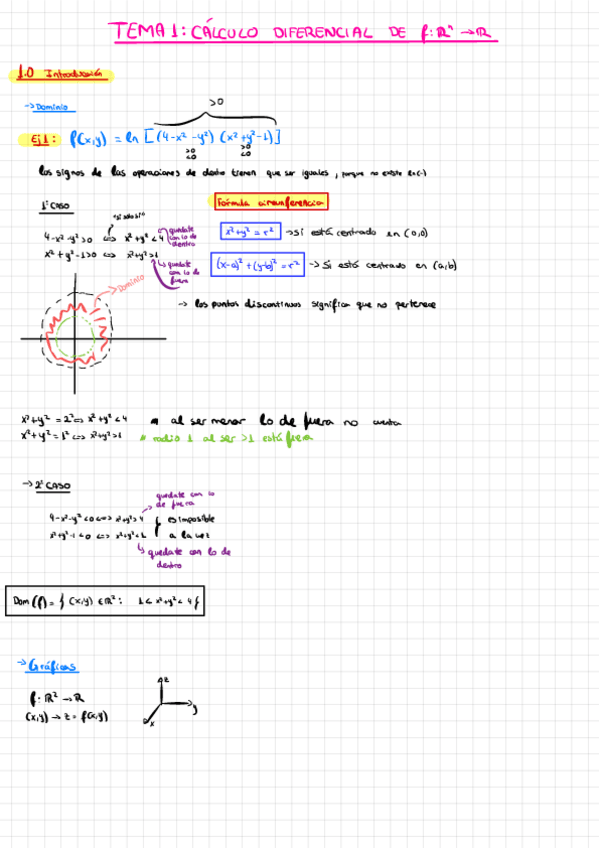 TEMA 1: CÁLCULO DIFERENCIAL DE f: ℝⁿ → ℝ
1.0 Introducción
→ Dominio
>0
Ej 1: f(x,y) = ln [(4-x²-y²) (x²+y²-1)]
>0 >0
<0 <0
los signos de las operaciones de dentro tienen que ser iguales, porque no existe ln(-)
1º CASO
Fórmula circunferencia
"si solo si"
4-x²-y²>0 ⇔ x²+y²<4 quedate con lo de dentro
x²+y²-1>0 ⇔ x²+y²>1 quedate con lo de fuera
x²+y² = r² → si está centrado en (0,0)
(x-a)² + (y-b)² = r² → Si está centrado en (a,b)
Dominio
→ los puntos discontinuos significa que no pertenece
x²+y² = 2² ⇔ x²+y²<4 * al ser menor lo de fuera no cuenta
x²+y² = 1² ⇔ x²+y²>1 * radio 1 al ser >1 está fuera
→ 2º CASO
quedate con lo de fuera
4-x²-y²<0 ⇔ x²+y²>4 } es imposible
x²+y²-1<0 ⇔ x²+y²<1 a la vez
quedate con lo de dentro
Dom (f) = { (x,y) ∈ ℝ²: 1 < x²+y² < 4 }
→ Gráficas
f: ℝ² → ℝ
(x,y) → z = f(x,y)
z
y
x